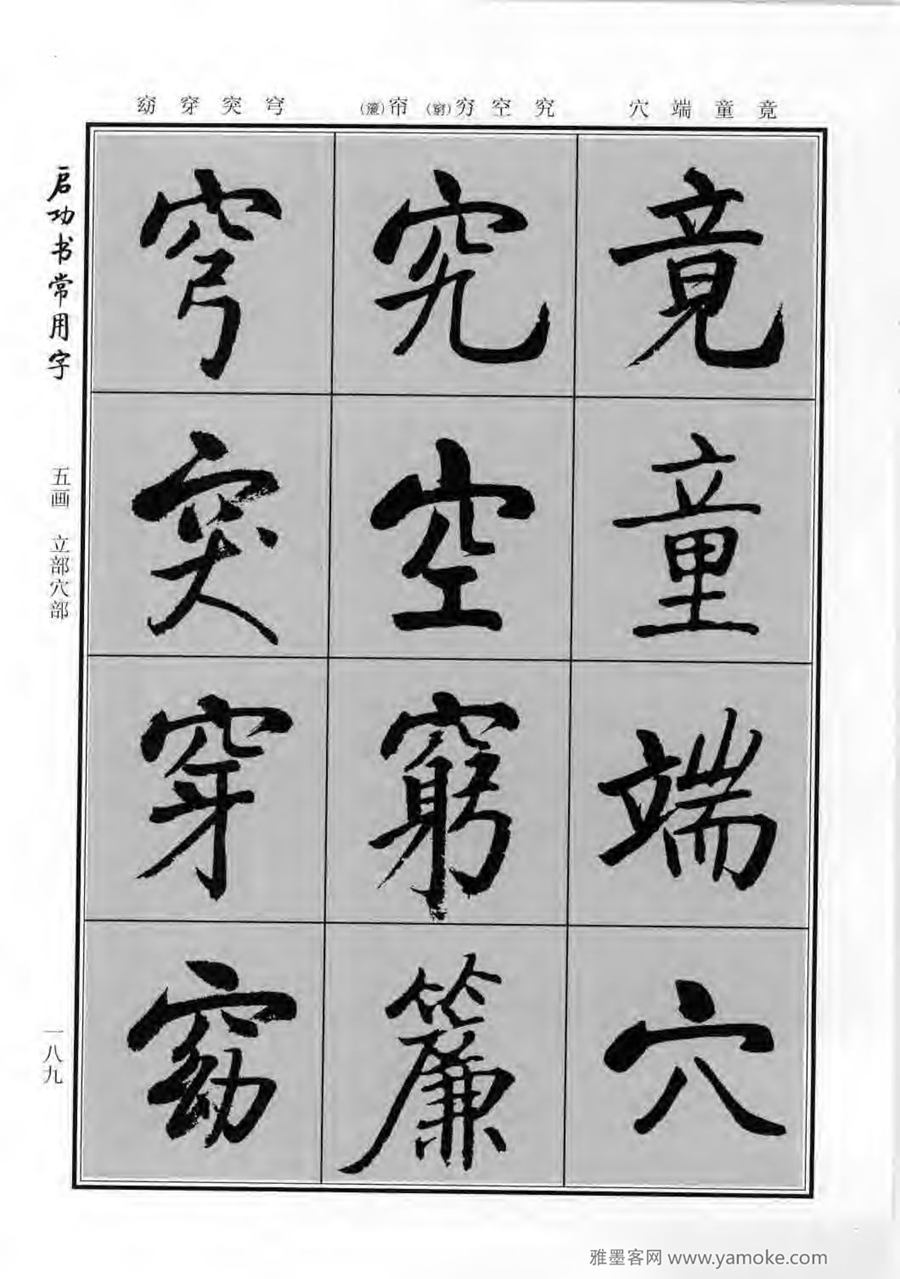 竟童端穴
究空穷(窮)帘(簾)
穹突穿窈
启功书常用字
五画 立部穴部
一八九
竟
童
端
穴
究
空
窮
簾
穹
突
穿
窈
雅墨客网 www.yamoke.com